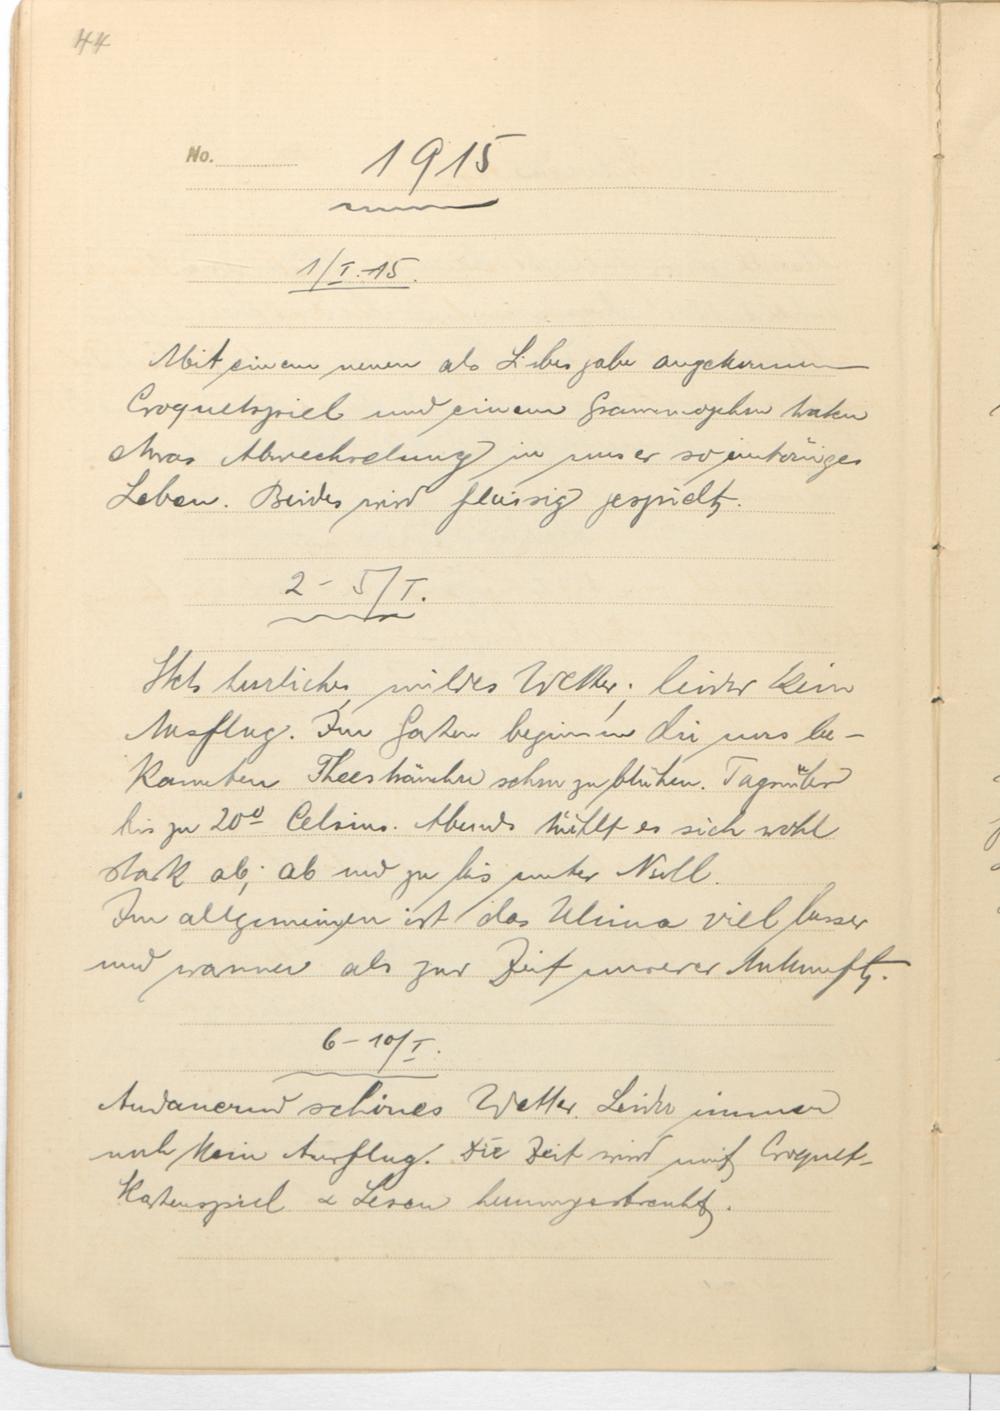 44
No. 1915
1/I.15.
Mit einem neuen als Liebesgabe angekommen
Croquetspiel und einem Grammophon
etwas Abwechselung in unser so eintöniges
Leben. Beides wird fleissig gespielt.
2 - 5/I.
Stets herrliches, mildes Wetter; leider kein
Ausflug. Im Garten beginnen die uns be-
kannten Theesträucher schon zu blühen. Tagsüber
bis zu 20° Celsius. Abends kühlt es sich wohl
stark ab; ab und zu bis unter Null.
Im allgemeinen ist das Klima viel besser
und warmer als zur Zeit unserer Ankunft.
6 - 10/I.
Andauernd schönes Wetter. Leider immer
noch kein Ausflug. Die Zeit wird mit Croquet-
Kartenspiel & Lesen herumgebracht.